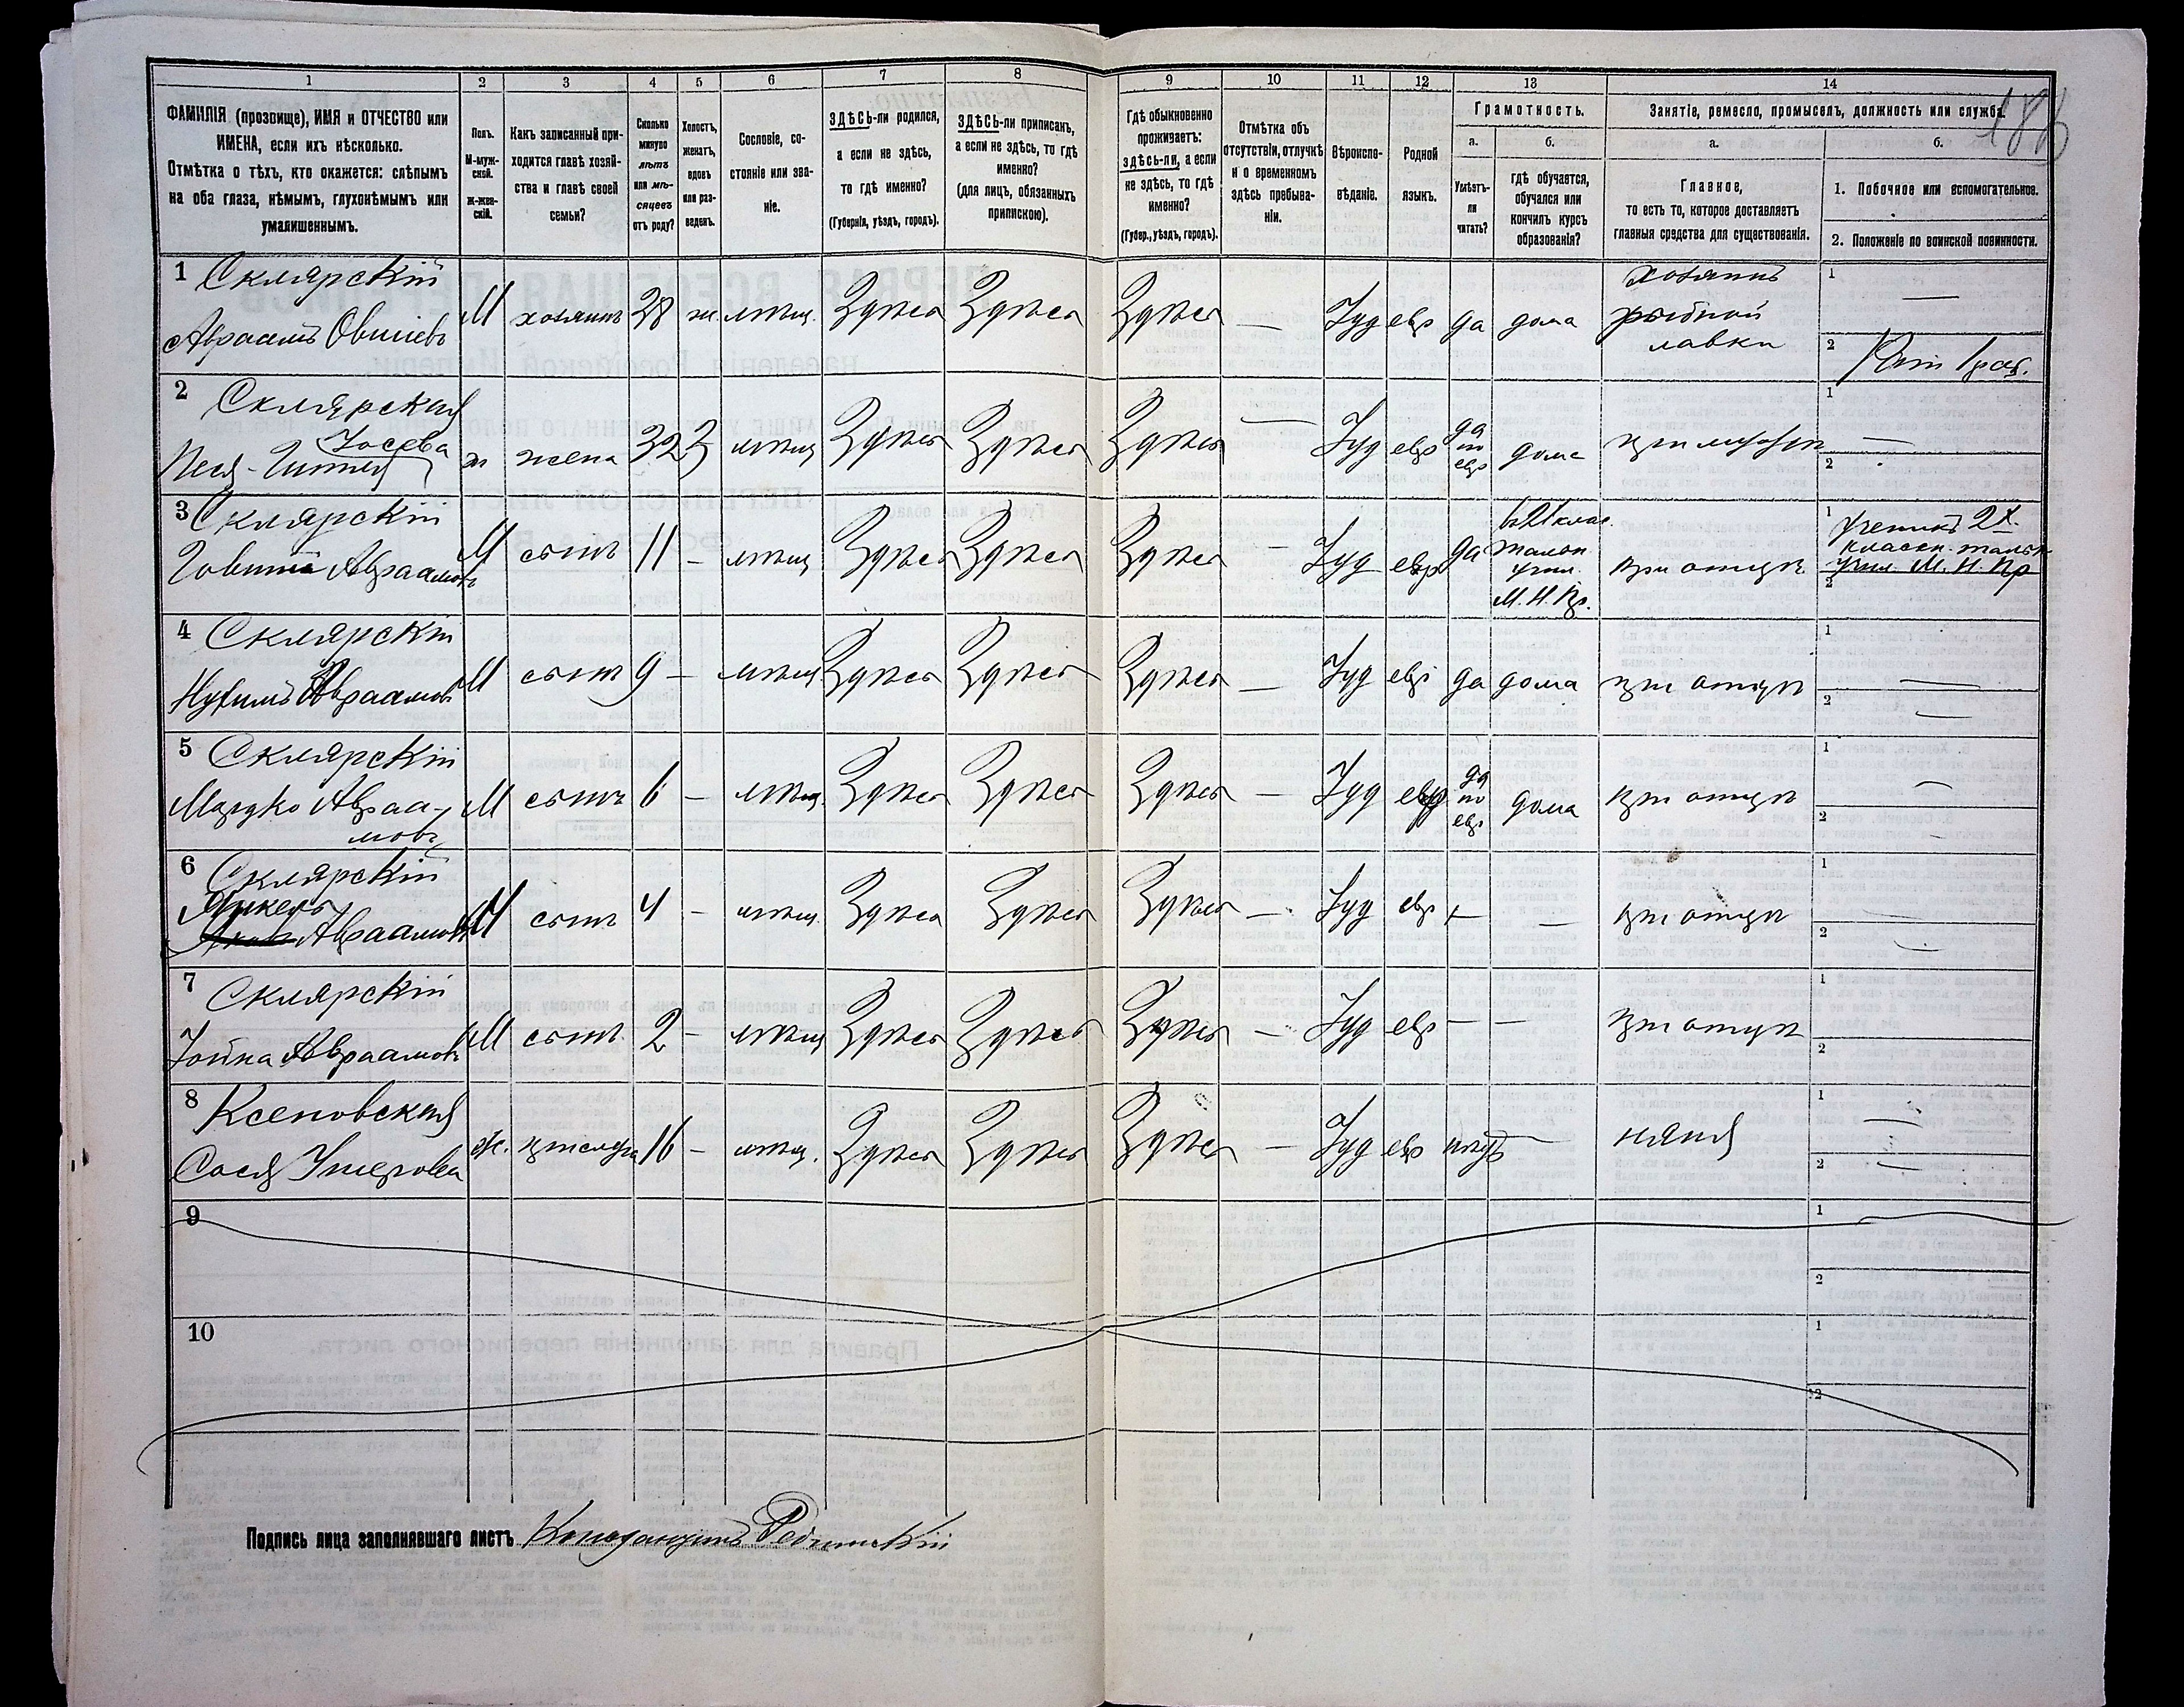 1 2 3 4 5 6 7 8 9 10 11 12 13 14
188
ФАМИЛІЯ (прозвище), ИМЯ и ОТЧЕСТВО или
ИМЕНА, если ихъ нѣсколько.
Отмѣтка о тѣхъ, кто окажется: слѣпымъ
на оба глаза, нѣмымъ, глухонѣмымъ или
умалишеннымъ.
Полъ.
М-муж-
ской.
Ж-жен-
скій.
Какъ записанный при-
ходится главѣ хозяй-
ства и главѣ своей
семьи?
Сколько
минуло
лѣтъ
или мѣ-
сяцевъ
отъ роду?
Холостъ,
женатъ,
вдовъ
или раз-
веденъ.
Сословіе, со-
стояніе или зва-
ніе.
ЗДѢСЬ-ли родился,
а если не здѣсь,
то гдѣ именно?
(Губернія, уѣздъ, городъ).
ЗДѢСЬ-ли приписанъ,
а если не здѣсь, то гдѣ
именно?
(для лицъ, обязанныхъ
припискою).
Гдѣ обыкновенно
проживаетъ:
здѣсь-ли, а если
не здѣсь, то гдѣ
именно?
(Губер., уѣздъ, городъ).
Отмѣтка объ
отсутствіи, отлучкѣ
и о временномъ
здѣсь пребыва-
ніи.
Вѣроиспо-
вѣданіе.
Родной
языкъ.
Грамотность.
а.
Умѣетъ-
ли
читать?
б.
гдѣ обучается,
обучался или
кончилъ курсъ
образованія?
Занятіе, ремесло, промыселъ, должность или служба.
а.
Главное,
то есть то, которое доставляетъ
главныя средства для существованія.
б.
1. Побочное или вспомогательное.
2. Положеніе по воинской повинности.
1 Склярскій
Авраамъ Овшіевъ
М хозяинъ 38 ж. мѣщ. Здѣсь Здѣсь Здѣсь — Іуд евр да дома
хозяинъ
рыбной
лавки
1 —
2
2 Склярская
Іосева
Песя-Гитля
ж жена 32 З мѣщ Здѣсь Здѣсь Здѣсь — Іуд евр
да
по
евр
дома при мужѣ
1 —
2
3 Склярскій
Авраамовъ
М сынъ 11 – мѣщ Здѣсь Здѣсь Здѣсь – Іуд евр да
учил.
М. Н. Пр.
при отцѣ
1 ученикъ 2х
класн.
учил. М. Н. Пр
2
4 Склярскій
Нухимъ Авраамовъ
М сынъ 9 – мѣщ Здѣсь Здѣсь Здѣсь — Іуд евр да дома при отцѣ
1 —
2 —
5 Склярскій
Мордко Авраа-
мовъ
М сынъ 6 – мѣщ. Здѣсь Здѣсь Здѣсь — Іуд евр
да
по
евр
дома при отцѣ
1 —
2 –
6 Склярскій
Янкель
Авраамовъ
М сынъ 4 – мѣщ. Здѣсь Здѣсь Здѣсь — Іуд евр — — при отцѣ
1 —
2 —
7 Склярскій
Іойна Авраамовъ
М сынъ 2 – мѣщ Здѣсь Здѣсь Здѣсь — Іуд евр — — при отцѣ
1
2
8 Ксеновская
Сося
Ж. прислуга 16 – мѣщ. Здѣсь Здѣсь Здѣсь — Іуд евр нѣтъ — няня
1 —
2 —
9
1
2
10
1
2
Подпись лица заполнявшаго листъ